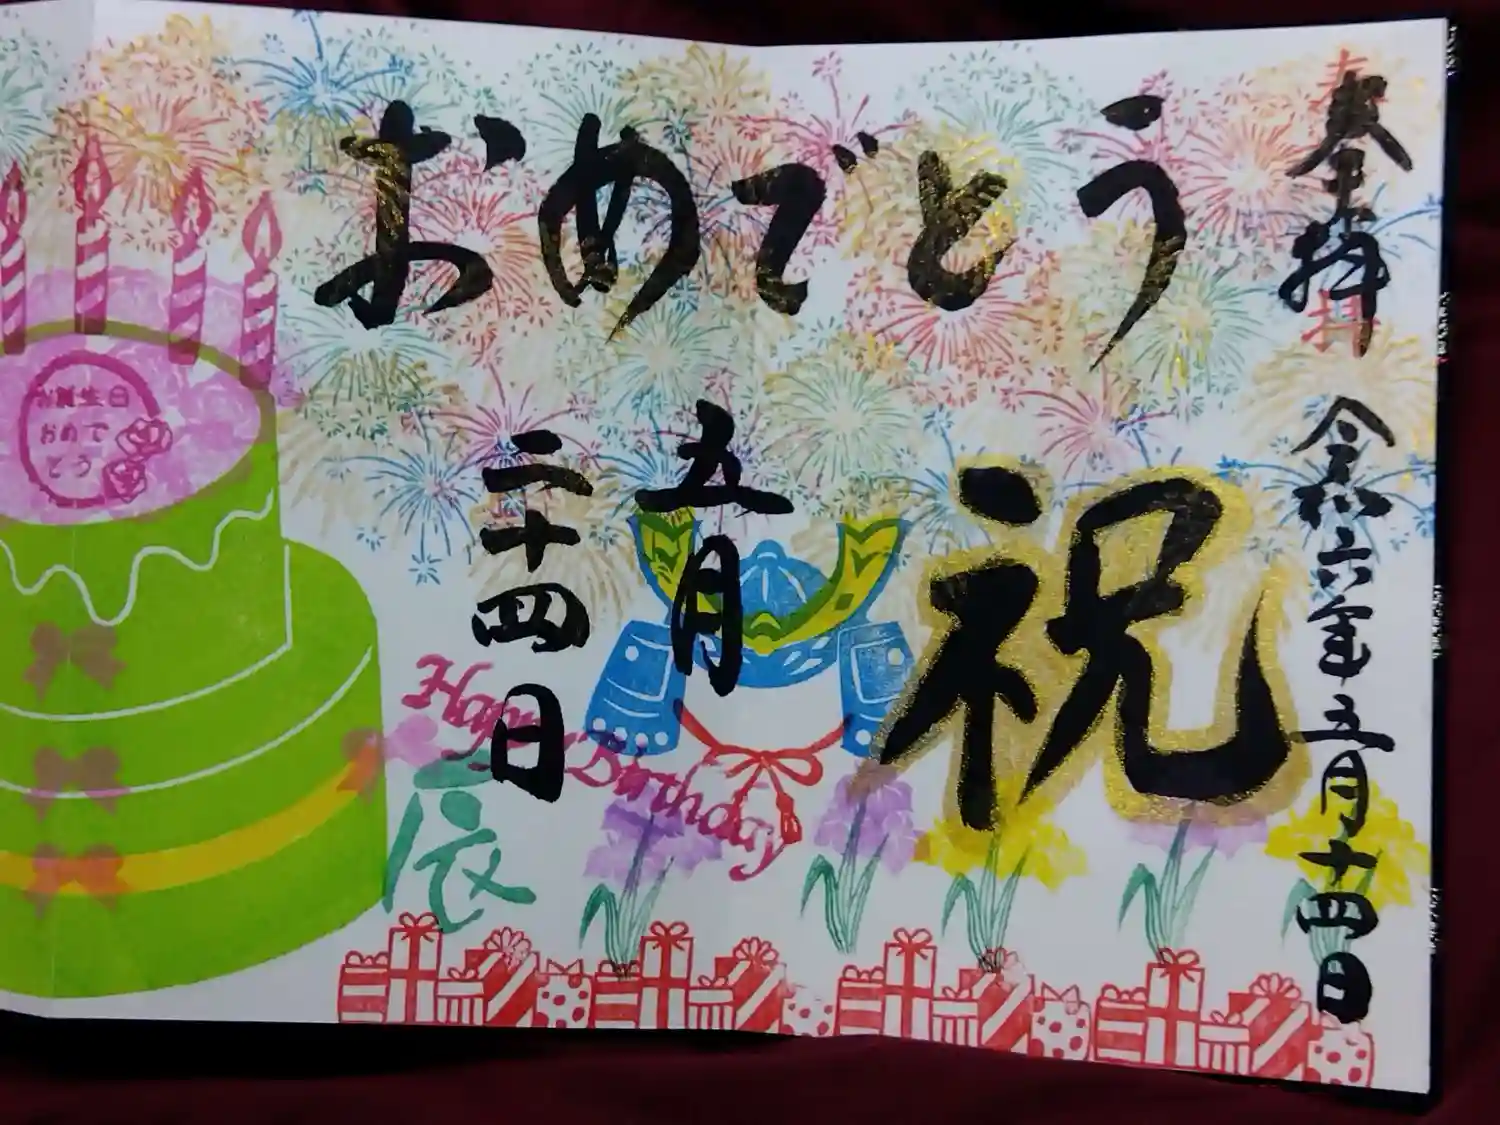 奉拝 令和六年五月十四日
おめでとう
祝
五月
二十四日
Happy Birthday
辰
お誕生日
おめで
とう